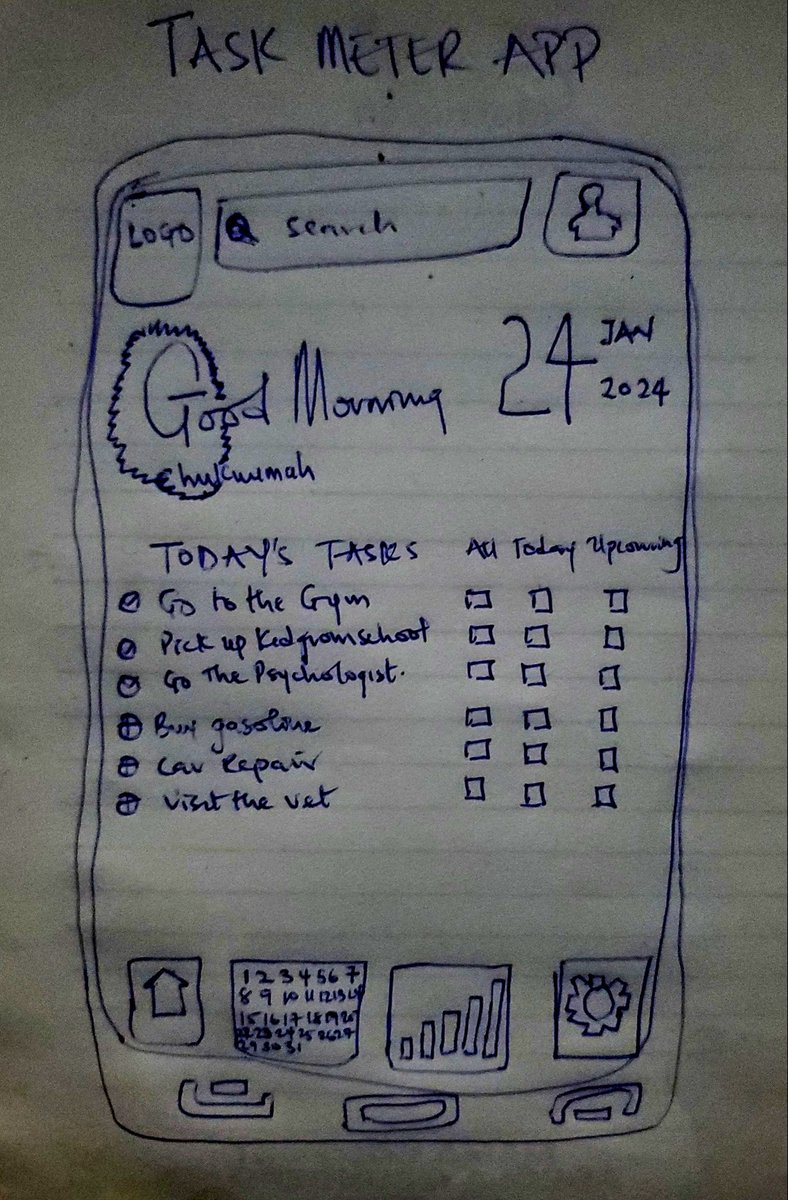 TASK METER APP
LOGO
Search
Good Morning
24 JAN
2024
Chukwumah
TODAY'S TASKS All Today Upcoming
Go to the Gym
Pick up Kid from school
Go The Psychologist.
Buy gasoline
Car Repair
Visit the vet
1 2 3 4 5 6 7
8 9 10 11 12 13 14
15 16 17 18 19 20
22 23 24 25 26 27
29 30 31